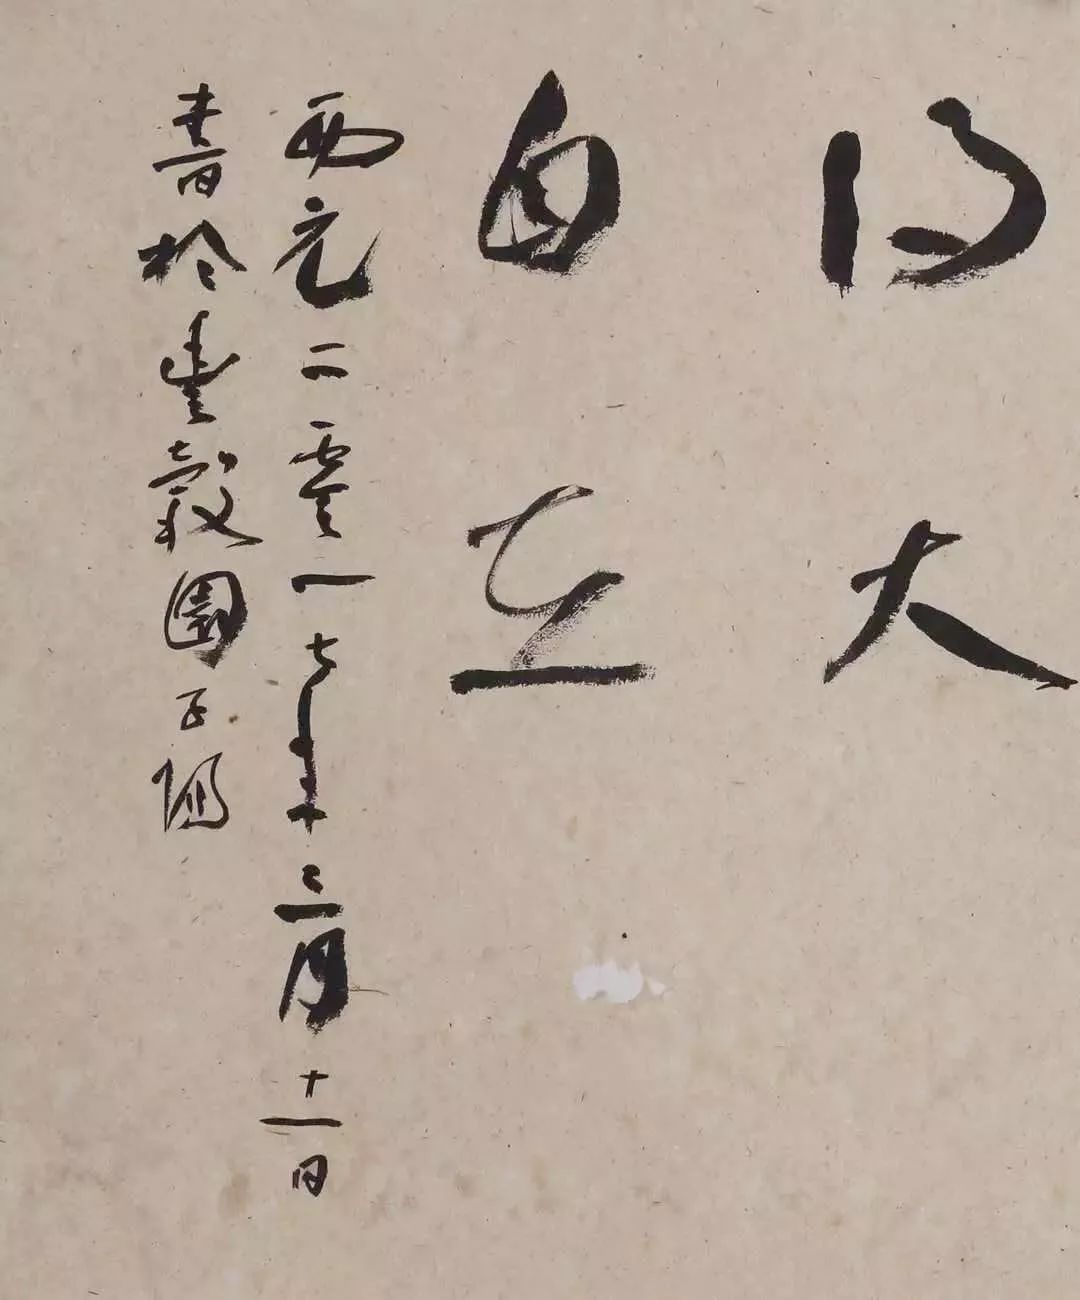 得大
自在
西元二零一七年三月十一日
書於豐穀園子陽